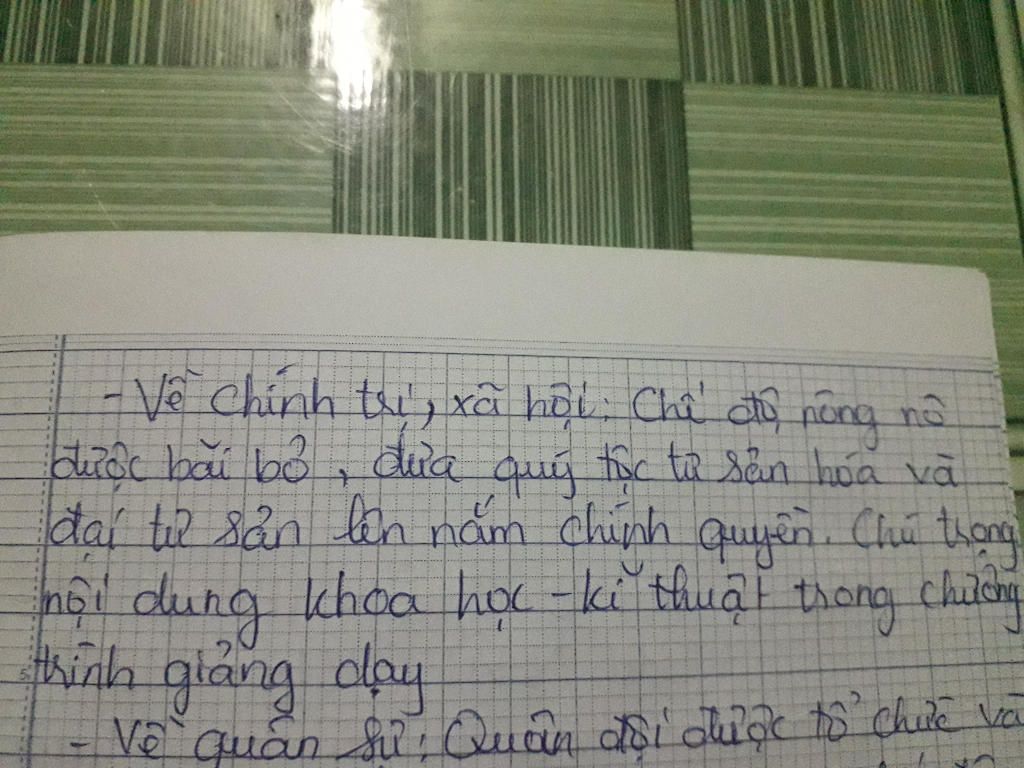 - Về chính trị, xã hội: Chế độ nông nô
được bãi bỏ, đưa quý tộc tư sản hóa và
đại tư sản lên nắm chính quyền. Chú trọng
nội dung khoa học - kĩ thuật trong chương
trình giảng dạy
- Về quân sự: Quân đội được tổ chức và